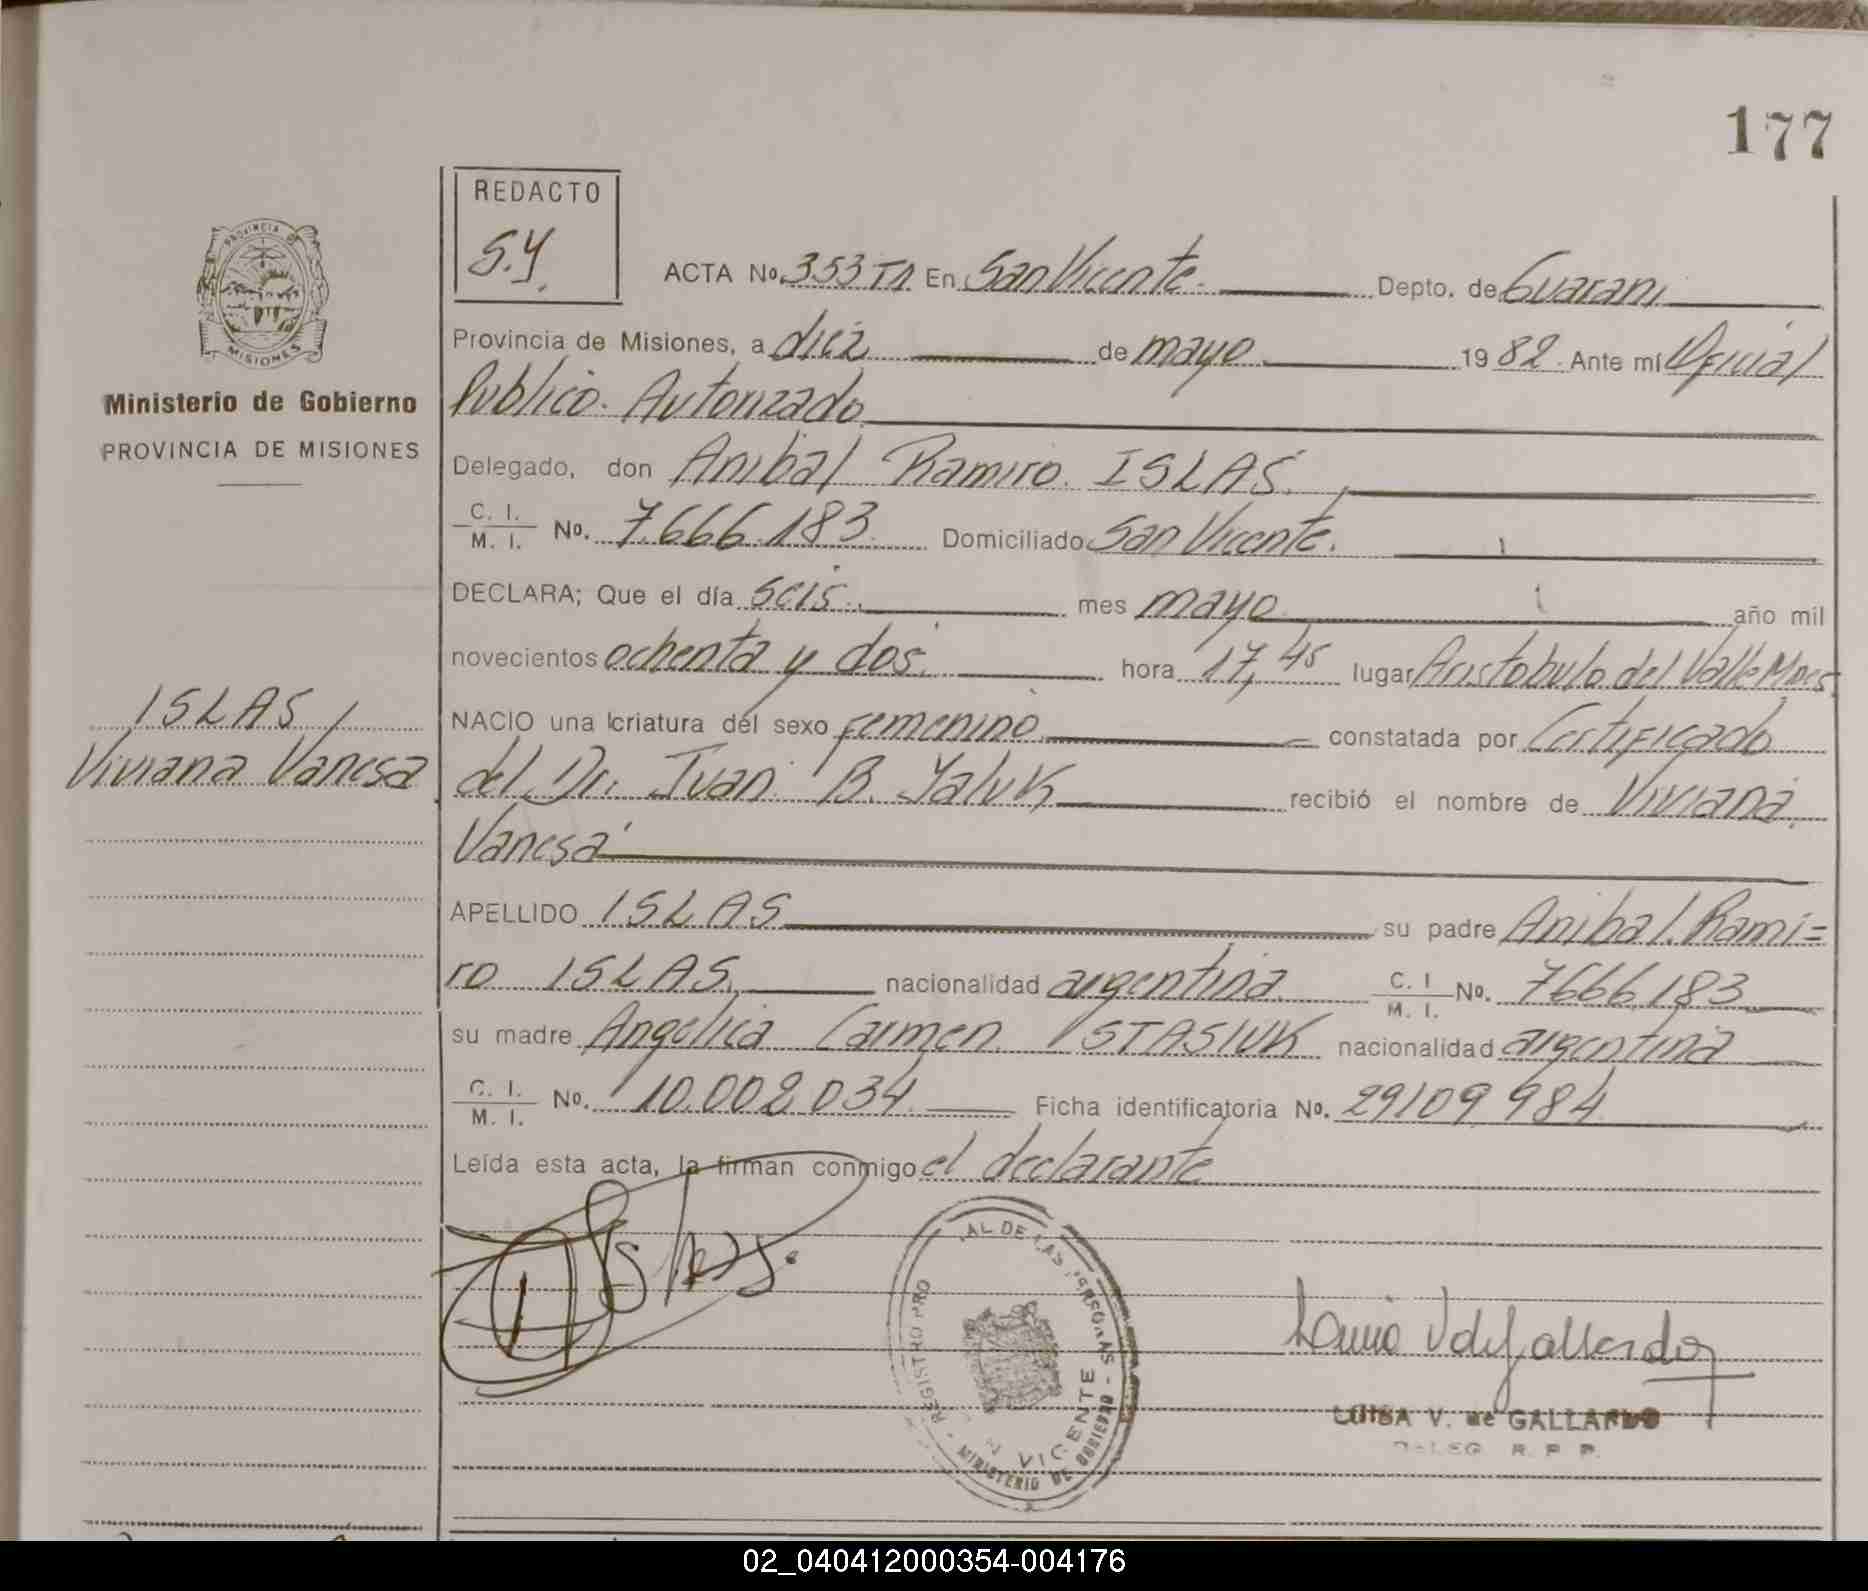 177
REDACTO
S.Y.
PROVINCIA DE
MISIONES
Ministerio de Gobierno
PROVINCIA DE MISIONES
ISLAS,
Viviana Vanesa
ACTA No. 353 TA En San Vicente. Depto. de Guarani
Provincia de Misiones, a diez de mayo 1982. Ante mí Oficial
Publico. Autorizado
Delegado, don Anibal Ramiro. ISLAS.,
C. I. / M. I. No. 7.666.183. Domiciliado San Vicente.
DECLARA; Que el día seis. mes mayo año mil
novecientos ochenta y dos. hora 17,45 lugar Aristobulo del Valle Mnes.
NACIO una criatura del sexo femenino constatada por Certificado
del Dr. Juan B. Yaluk recibió el nombre de Viviana.
Vanesa
APELLIDO ISLAS su padre Anibal. Rami=
ro ISLAS. nacionalidad argentina. C. I / M. I. No. 7666.183
su madre Angelica Carmen. STASIUK nacionalidad argentina
C. I. / M. I. No. 10.002.034. Ficha identificatoria No. 29109984
Leída esta acta, la firman conmigo el declarante
REGISTRO PRO AL DE LAS PERSONAS - MINISTERIO DE GOBIERNO -
VICENTE
LUISA V. de GALLARDO
DELEG. R. P. P.
02_040412000354-004176